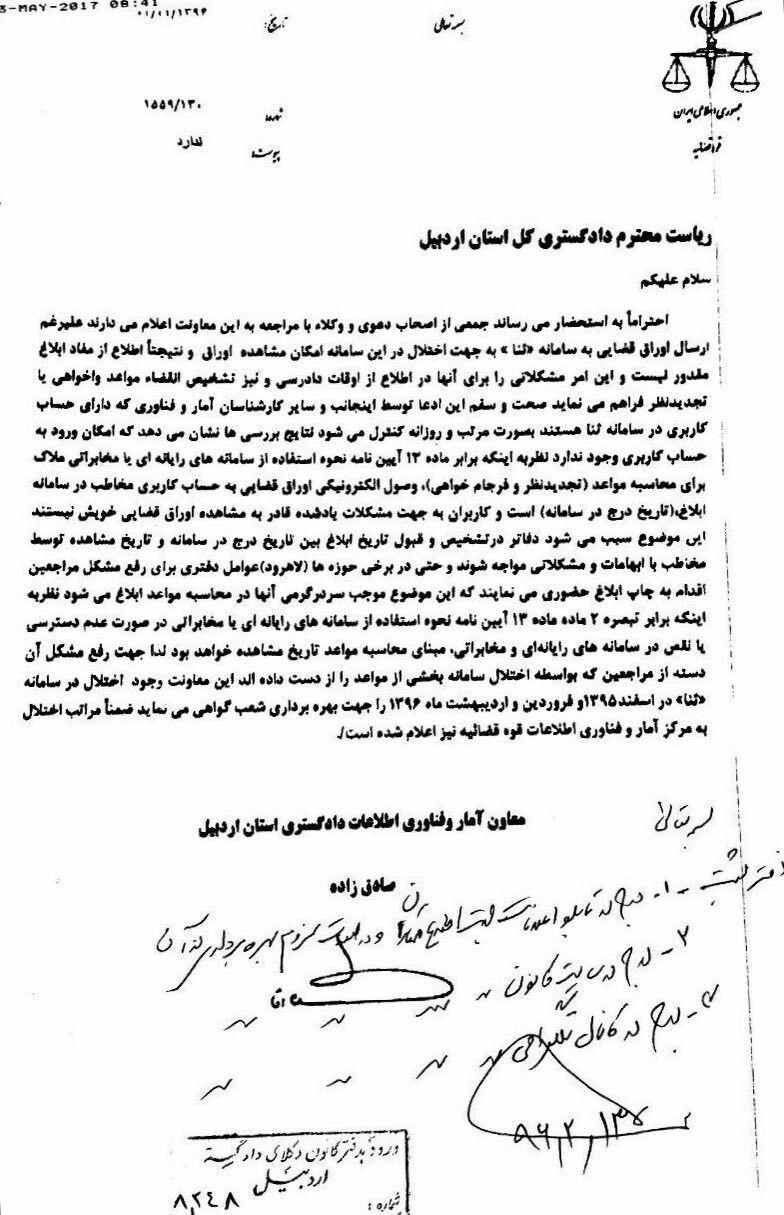 3-MAY-2017 08:41
بسمه تعالی
تاریخ:
جمهوری اسلامی ایران
قوه قضائیه
شماره
۱۵۵۹/۱۳۰
پیوست:
ندارد
ریاست محترم دادگستری کل استان اردبیل
سلام علیکم
احتراماً به استحضار می رساند جمعی از اصحاب دعوی و وکلاء با مراجعه به این معاونت اعلام می دارند علیرغم
ارسال اوراق قضایی به سامانه «ثنا » به جهت اختلال در این سامانه امکان مشاهده اوراق و نتیجتاً اطلاع از مفاد ابلاغ
مقدور نیست و این امر مشکلاتی را برای آنها در اطلاع از اوقات دادرسی و نیز تشخیص انقضاء مواعد واخواهی یا
تجدیدنظر فراهم می نماید صحت و سقم این ادعا توسط اینجانب و سایر کارشناسان آمار و فناوری که دارای حساب
کاربری در سامانه ثنا هستند بصورت مرتب و روزانه کنترل می شود نتایج بررسی ها نشان می دهد که امکان ورود به
حساب کاربری وجود ندارد نظربه اینکه برابر ماده ۱۳ آیین نامه نحوه استفاده از سامانه های رایانه ای یا مخابراتی ملاک
برای محاسبه مواعد (تجدیدنظر و فرجام خواهی)، وصول الکترونیکی اوراق قضایی به حساب کاربری مخاطب در سامانه
ابلاغ،(تاریخ درج در سامانه) است و کاربران به جهت مشکلات یادشده قادر به مشاهده اوراق قضایی خویش نیستند
این موضوع سبب می شود دفاتر درتشخیص و قبول تاریخ ابلاغ بین تاریخ درج در سامانه و تاریخ مشاهده توسط
مخاطب با ابهامات و مشکلاتی مواجه شوند و حتی در برخی حوزه ها (لاهرود)عوامل دفتری برای رفع مشکل مراجعین
اقدام به چاپ ابلاغ حضوری می نمایند که این موضوع موجب سردرگرمی آنها در محاسبه مواعد ابلاغ می شود نظربه
اینکه برابر تبصره ۲ ماده ماده ۱۳ آیین نامه نحوه استفاده از سامانه های رایانه ای یا مخابراتی در صورت عدم دسترسی
یا نقص در سامانه های رایانه‌ای و مخابراتی، مبنای محاسبه مواعد تاریخ مشاهده خواهد بود لذا جهت رفع مشکل آن
دسته از مراجعین که بواسطه اختلال سامانه بخشی از مواعد را از دست داده اند این معاونت وجود اختلال در سامانه
«ثنا» در اسفند۱۳۹۵و فروردین و اردیبهشت ماه ۱۳۹۶ را جهت بهره برداری شعب گواهی می نماید ضمناً مراتب اختلال
به مرکز آمار و فناوری اطلاعات قوه قضائیه نیز اعلام شده است/.
معاون آمار وفناوری اطلاعات دادگستری استان اردبیل
صادق زاده
بسمه تعالی
۱- درج در تابلو اعلانات جهت اطلاع همکاران و در صورت لزوم بهره برداری از آن
۲- درج در سایت کانون
۳- درج در کانال تلگرامی
۹۶,۲,۱۳
ورود بدفتر کانون وکلای دادگستری
اردبیل
شماره:
۸,۲۴۸